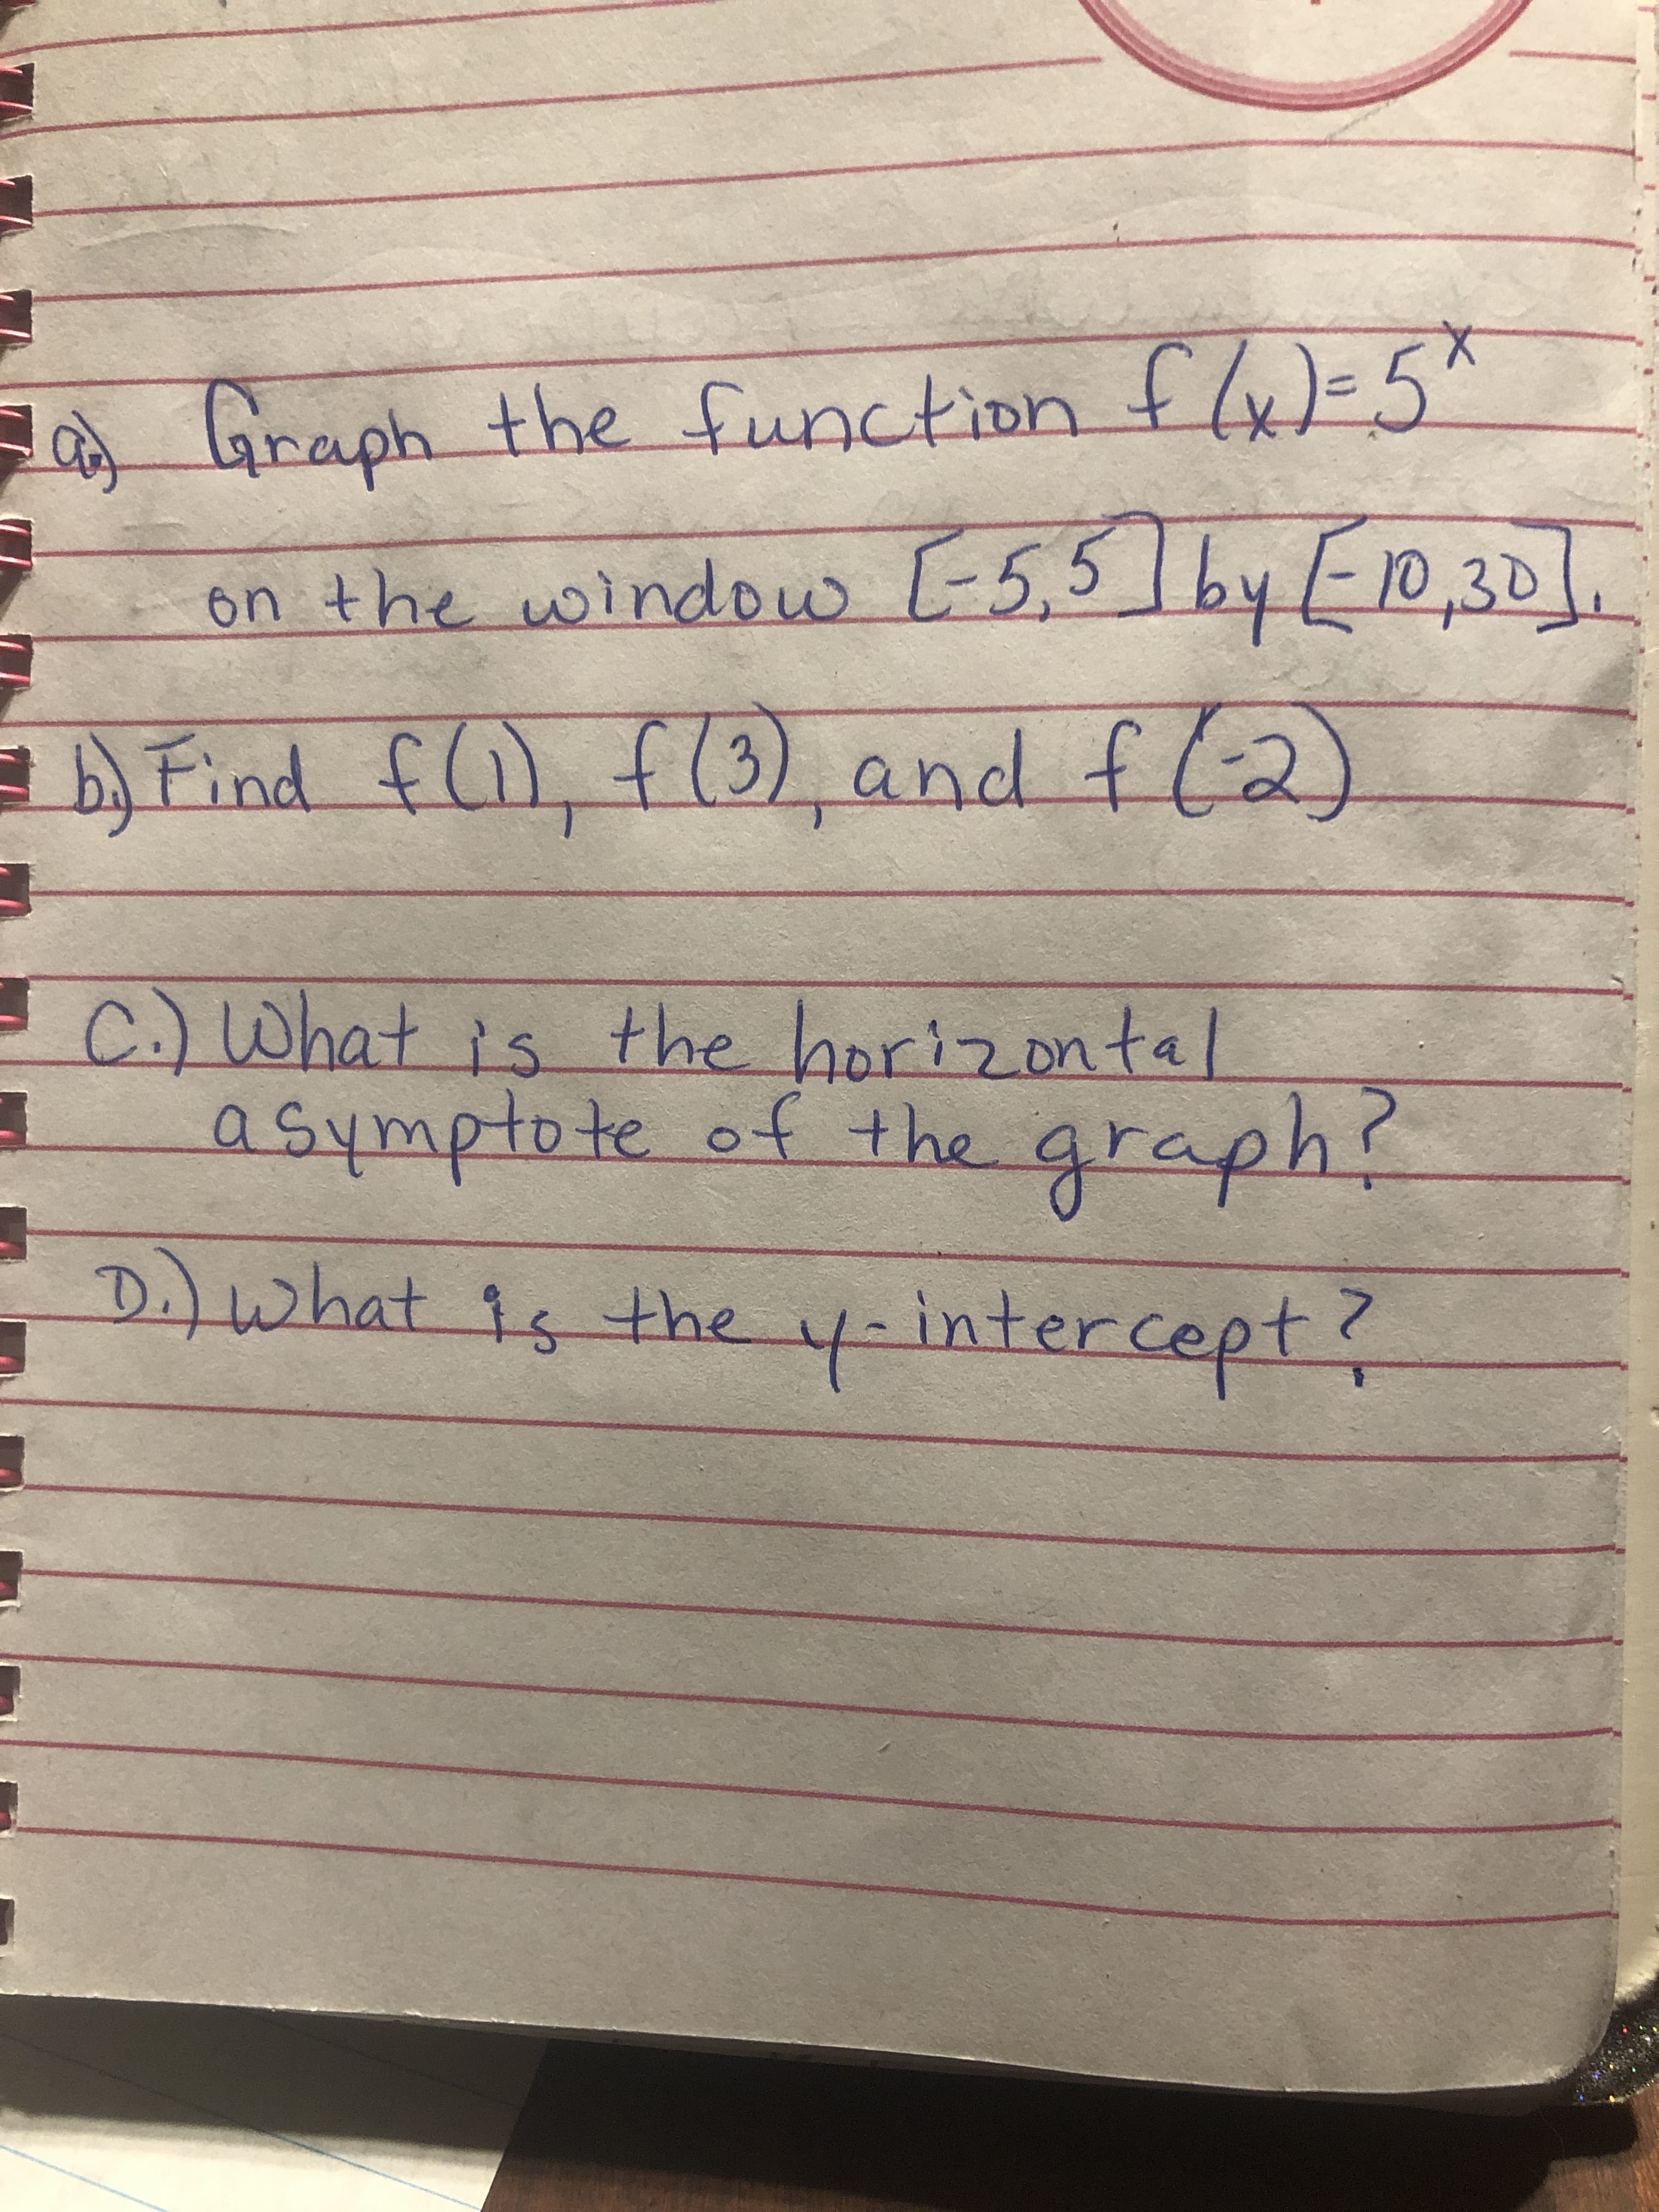 a.) Graph the function f(x)=5^x
on the window [-5,5] by [-10,30].
b.) Find f(1), f(3), and f(-2)
C.) What is the horizontal
asymptote of the graph?
D.) What is the y-intercept?